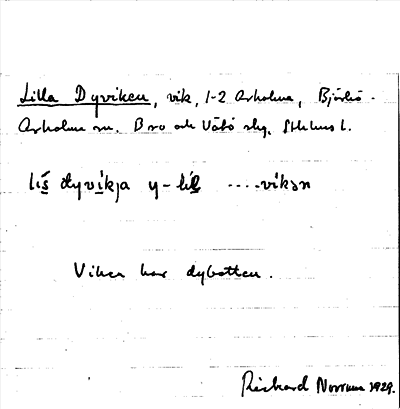 Lilla Dyviken, vik, 1-2 Arholma, Björkö-
Arholma sn. Bro och Vätö skg, Sthlms l.
lis dyvikja y-lil ....vikən
Viken har dybotten.
Rickard Norrman 1929.